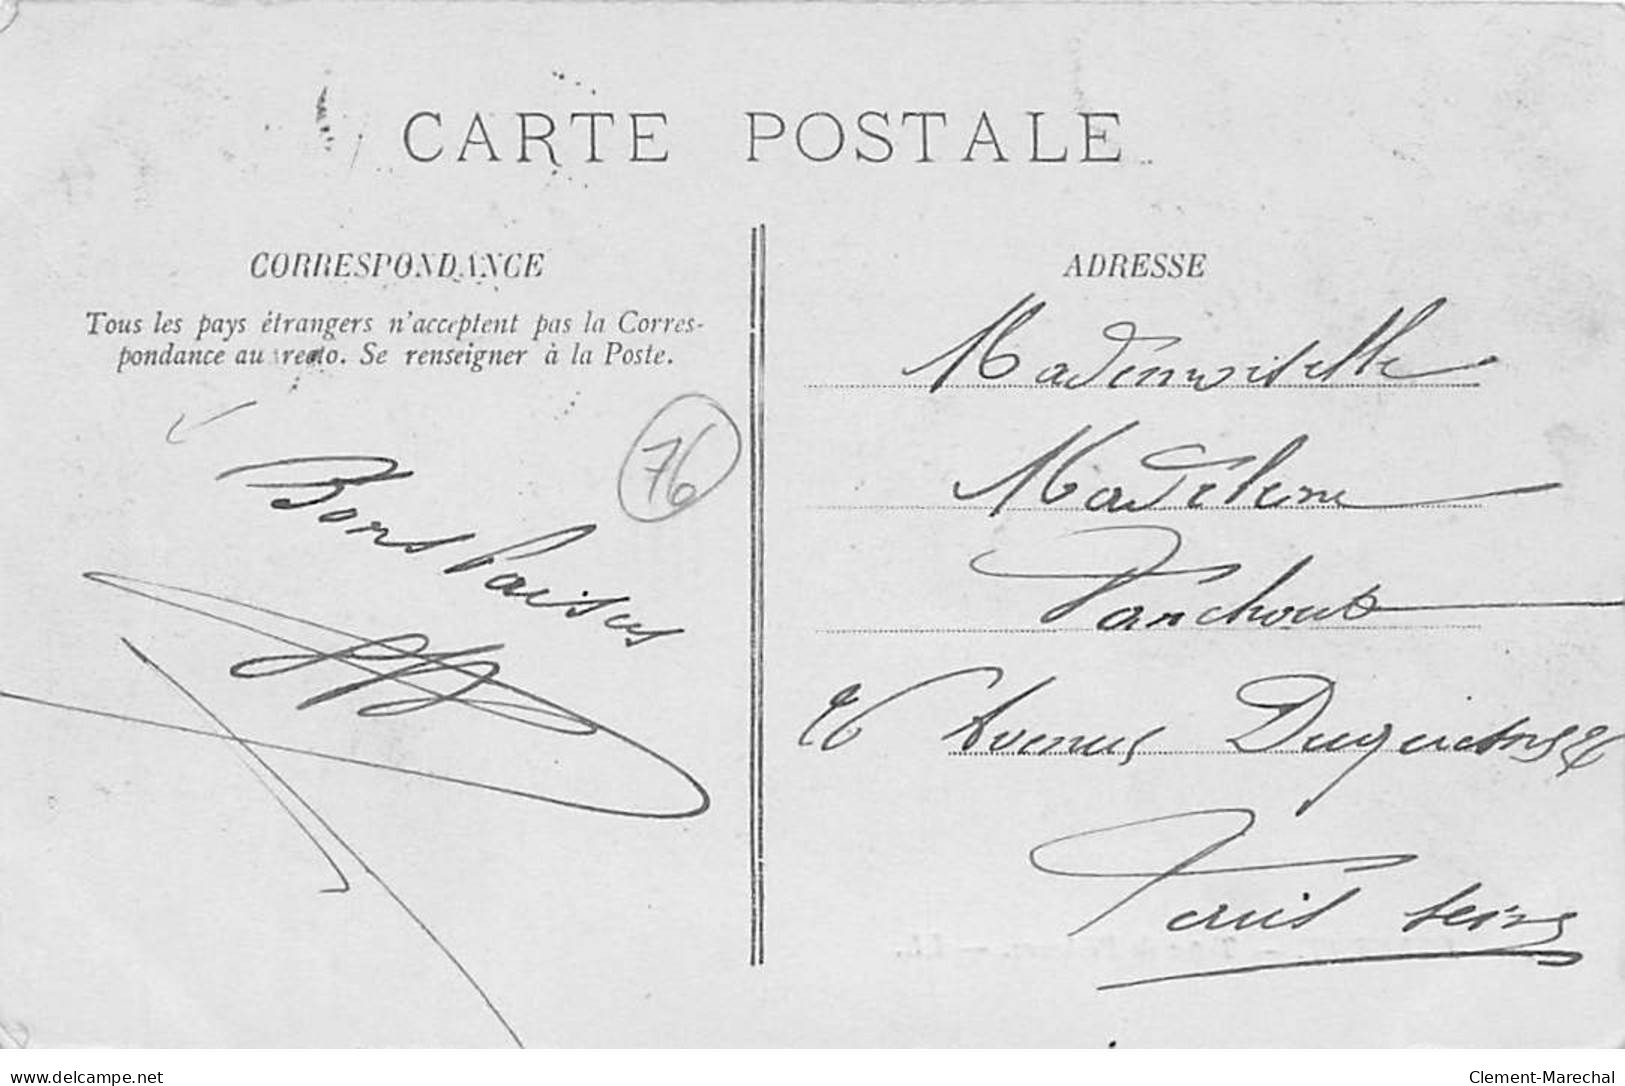 CARTE POSTALE
CORRESPONDANCE
Tous les pays étrangers n'acceptent pas la Corres-
pondance au recto. Se renseigner à la Poste.
76
Bons Baisers
ADRESSE
Mademoiselle
Madeleine
Vanchout
26 Avenue Duquesne 26
Paris Seine
delcampe.net
Clement-Marechal